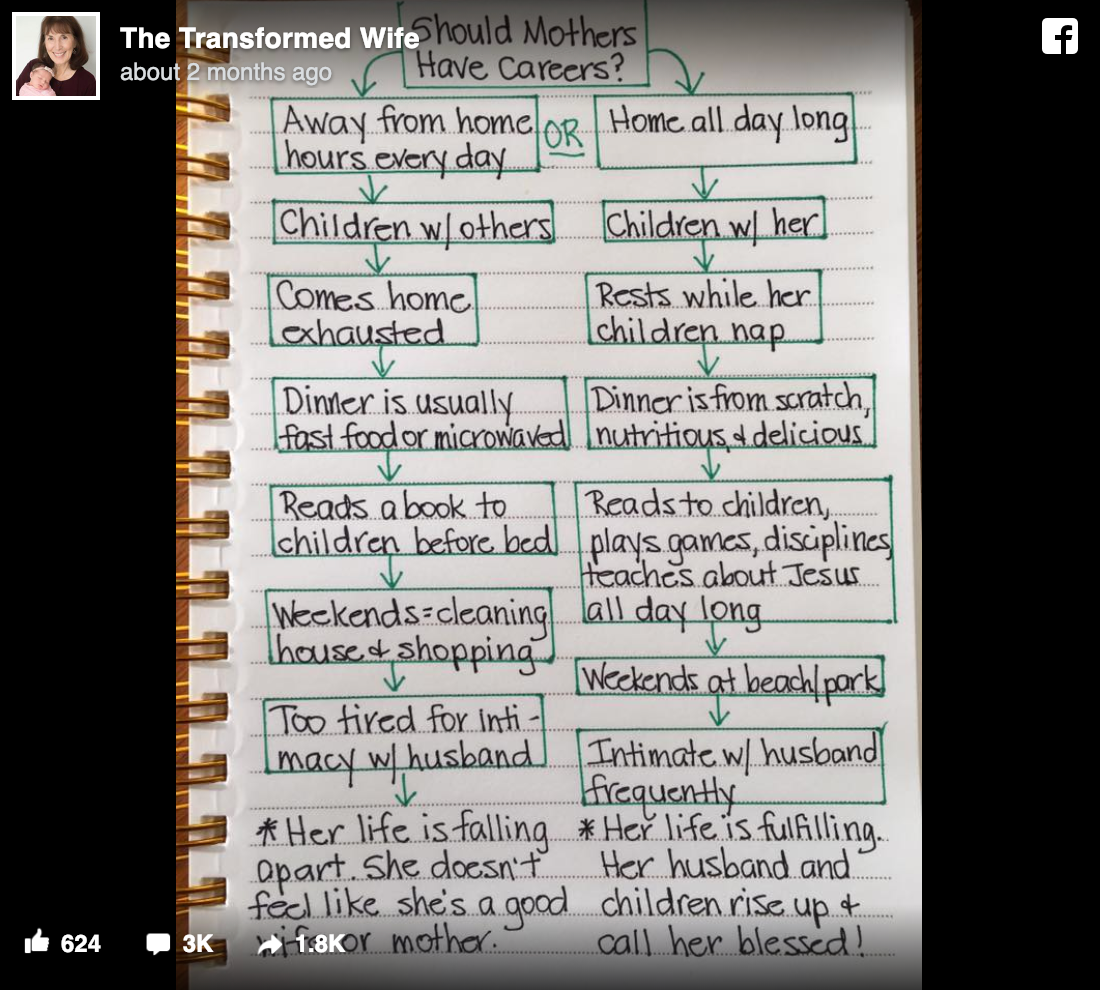 The Transformed Wife
about 2 months ago
Should Mothers
Have Careers?
Away from home
hours every day
OR
Home all day long
Children w/ others
Children w/ her
Comes home
exhausted
Rests while her
children nap
Dinner is usually
fast food or microwaved
Dinner is from scratch,
nutritious, & delicious
Reads a book to
children before bed
Reads to children,
plays games, disciplines,
teaches about Jesus
all day long
Weekends=cleaning
house & shopping
Weekends at beach/park
Too tired for inti-
macy w/ husband
Intimate w/ husband
frequently
* Her life is falling
apart. She doesn't
feel like she's a good
wife or mother.
* Her life is fulfilling.
Her husband and
children rise up &
call her blessed!
624
3K
1.8K